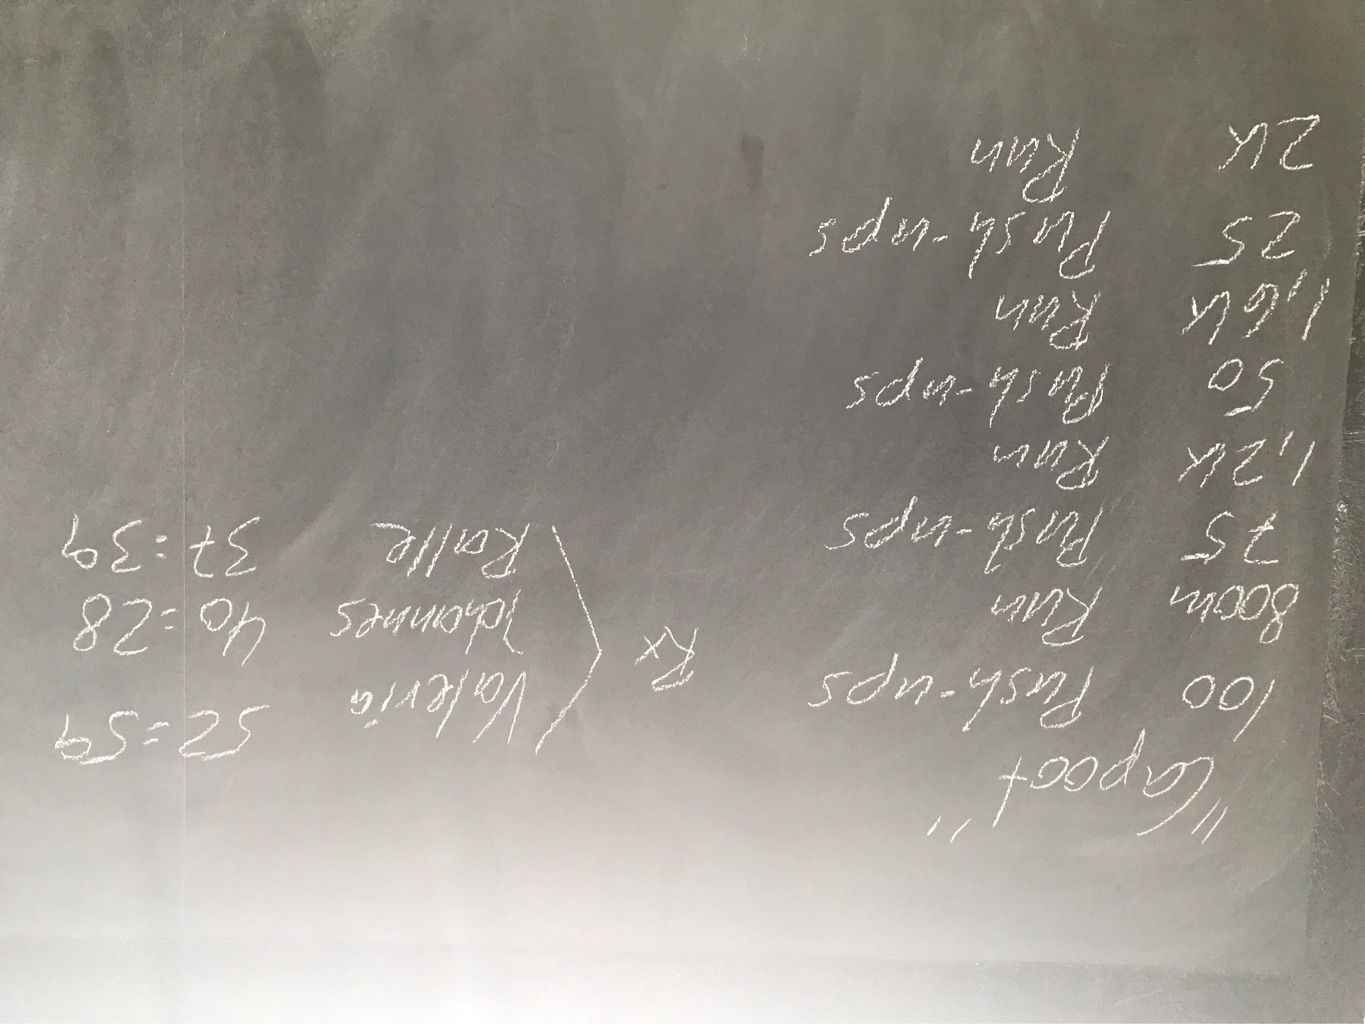 "Capoot"
100 Push-ups
800m Run
75 Push-ups
1,2K Run
50 Push-ups
1,6K Run
25 Push-ups
2K Run
Rx
Valeria 52=59
Johannes 40=28
Kalle 37=39